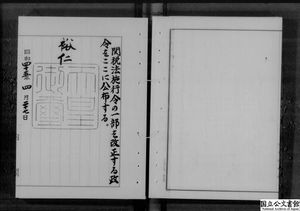 関税法施行令の一部を改正する政
令をここに公布する。
裕仁
天皇御璽
昭和四十五年四月三十日
国立公文書館
National Archives of Japan